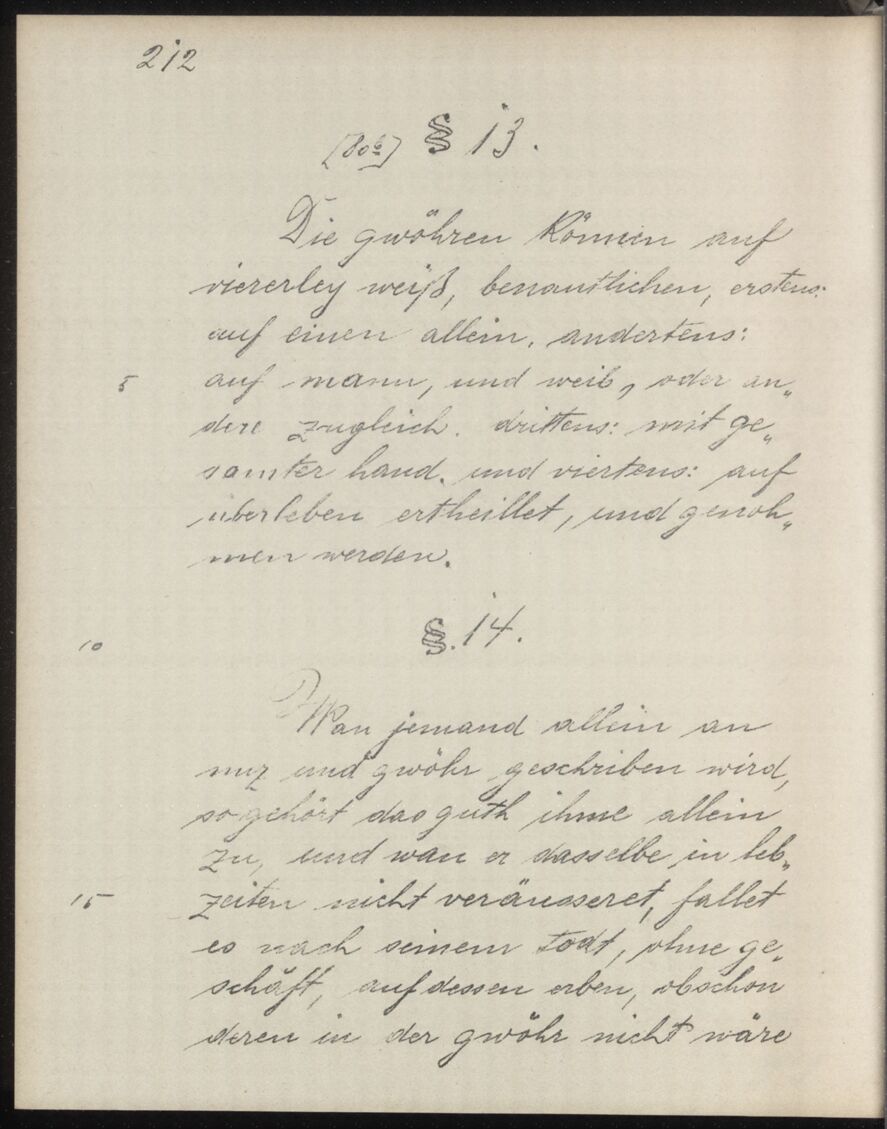 212
[80b] § 13.
Die gwöhren können auf
viererley weiß, benantlichen, erstens:
auf einen allein, andertens:
5 auf mann, und weib, oder an„
dere zugleich. drittens: mit ge„
samter hand. und viertens: auf
überleben ertheillet, und genoh„
men werden.
10 §. 14.
Wan jemand allein an
nuz und gwöhr geschriben wird,
so gehört das guth ihme allein
zu, und wan er dasselbe in leb„
15 zeiten nicht veräusseret, fallet
es nach seinem todt, ohne ge„
schäft, auf dessen erben, obschon
deren in der gwöhr nicht wäre